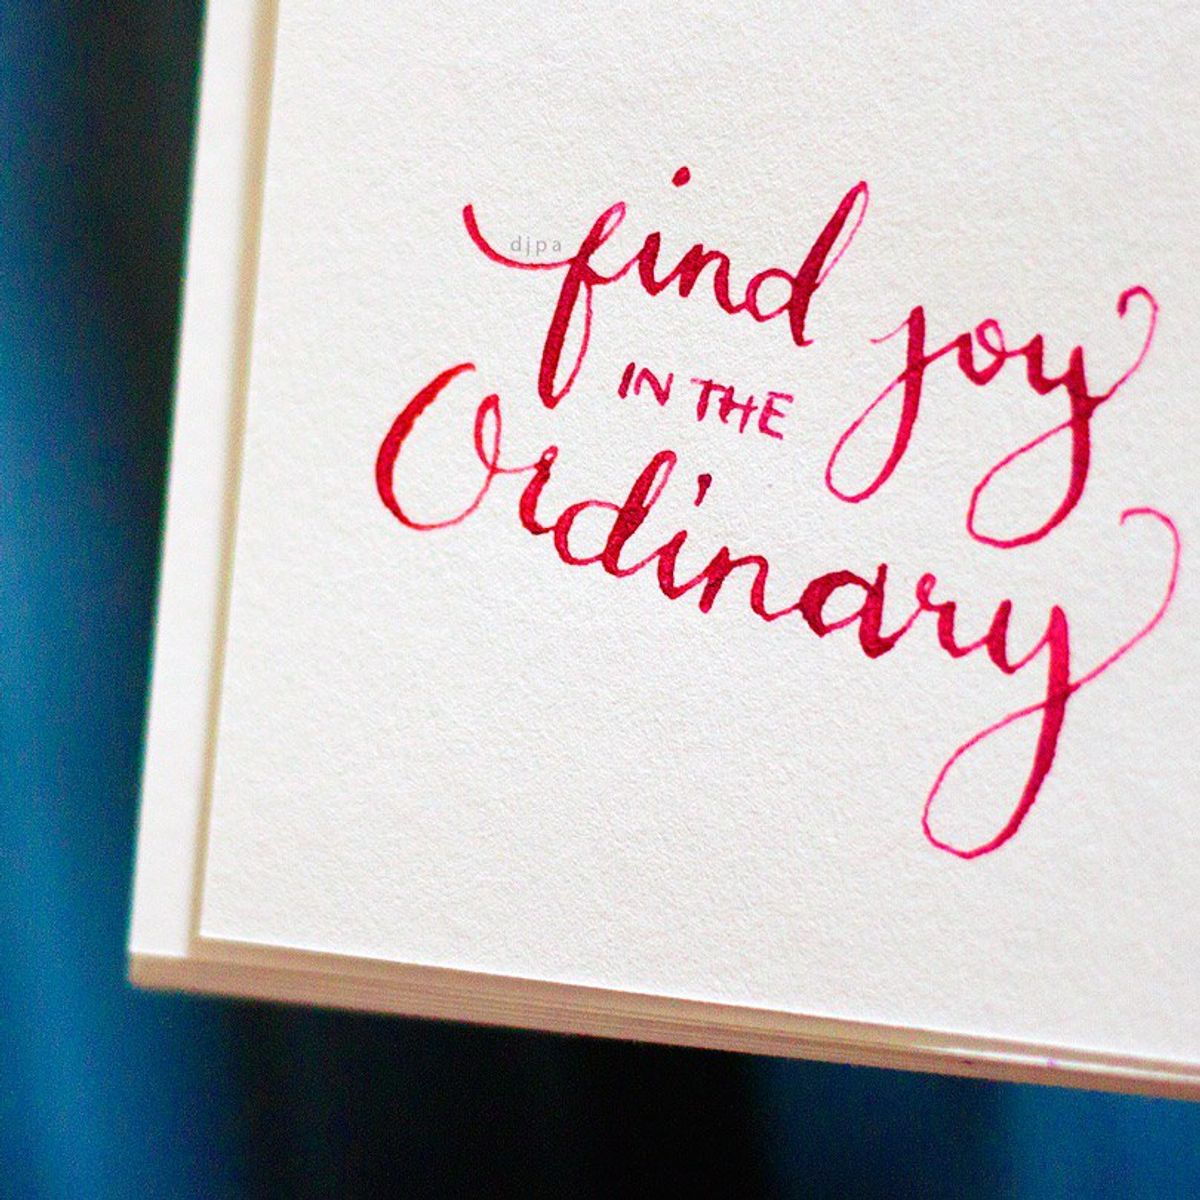 djpa
find joy
IN THE
Ordinary